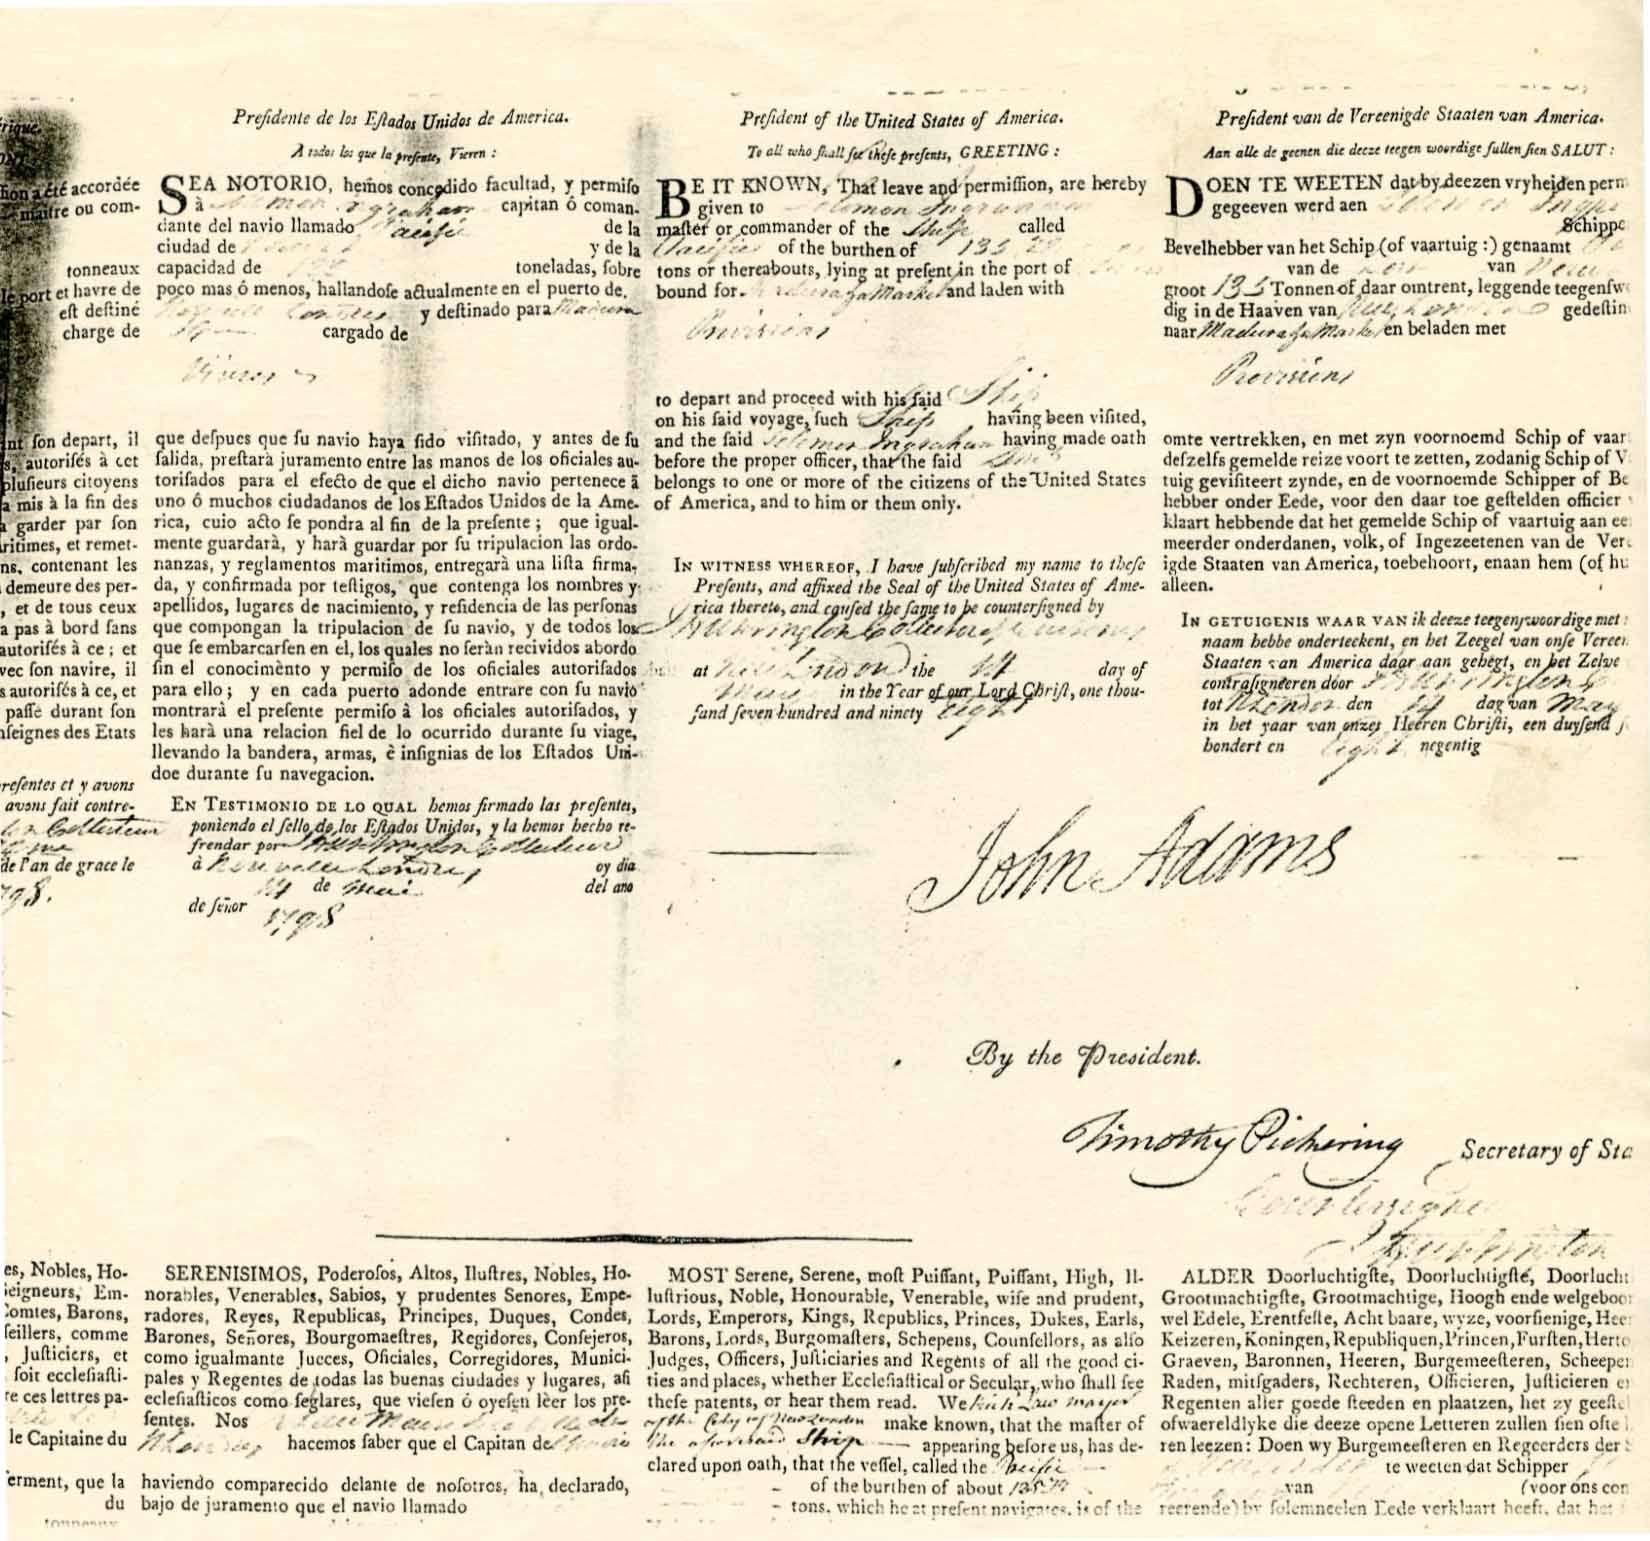 érique.
ONT
Presidente de los Eſtados Unidos de America.
A todos los que la preſente, Vieren :
ſion a été accordée
maître ou com-
tonneaux
le port et havre de
eſt deſtiné
charge de
SEA NOTORIO, hemos concedido facultad, y permiſo
à Solomon Ingraham capitan ó coman-
dante del navio llamado Pacific de la
ciudad de y de la
capacidad de toneladas, ſobre
poco mas ó menos, hallandoſe actualmente en el puerto de
Nouvelle Londres y deſtinado para Madeira
cargado de
Viveres
nt ſon depart, il
s, autoriſés à cet
pluſieurs citoyens
a mis à la fin des
à garder par ſon
ritimes, et remet-
ns, contenant les
demeure des per-
, et de tous ceux
a pas à bord ſans
autoriſés à ce ; et
vec ſon navire, il
s autoriſés à ce, et
paſſe durant ſon
nſeignes des Etats
que deſpues que ſu navio haya ſido viſitado, y antes de ſu
ſalida, preſtarà juramento entre las manos de los oficiales au-
toriſados para el efecto de que el dicho navio pertenece à
uno ó muchos ciudadanos de los Eſtados Unidos de la Ame-
rica, cuio acto ſe pondra al fin de la preſente ; que igual-
mente guardarà, y harà guardar por ſu tripulacion las ordo-
nanzas, y reglamentos maritimos, entregarà una liſta firma-
da, y confirmada por teſtigos, que contenga los nombres y
apellidos, lugares de nacimiento, y reſidencia de las perſonas
que compongan la tripulacion de ſu navio, y de todos los
que ſe embarcarſen en el, los quales no ſeràn recividos abordo
ſin el conocimènto y permiſo de los oficiales autoriſados
para ello ; y en cada puerto adonde entrare con ſu navio
montrarà el preſente permiſo à los oficiales autoriſados, y
les harà una relacion fiel de lo ocurrido durante ſu viage,
llevando la bandera, armas, è inſignias de los Eſtados Uni-
doe durante ſu navegacion.
reſentes et y avons
avons fait contre-
de l'an de grace le
1798.
EN TESTIMONIO DE LO QUAL hemos firmado las preſentes,
poniendo el ſello de los Eſtados Unidos, y la hemos hecho re-
frendar por J Huntington Collecteur
à Nouvelle Londres oy dia
14 de Mai del ano
de ſeñor 1798
Preſident of the United States of America.
To all who ſhall ſee theſe preſents, GREETING :
BE IT KNOWN, That leave and permiſſion, are hereby
given to Solomon Ingraham
maſter or commander of the Ship called
Pacific of the burthen of 135
tons or thereabouts, lying at preſent in the port of
bound for Madeira & a Market and laden with
Proviſions
to depart and proceed with his ſaid Ship
on his ſaid voyage, ſuch Ship having been viſited,
and the ſaid Solomon Ingraham having made oath
before the proper officer, that the ſaid Ship
belongs to one or more of the citizens of the United States
of America, and to him or them only.
IN WITNESS WHEREOF, I have ſubſcribed my name to theſe
Preſents, and affixed the Seal of the United States of Ame-
rica thereto, and cauſed the ſame to be counterſigned by
J Huntington Collector of Cuſtoms
at New London the 14 day of
May in the Year of our Lord Chriſt, one thou-
ſand ſeven hundred and ninety eight
Preſident van de Vereenigde Staaten van America.
Aan alle de geenen die deeze teegen woordige ſullen ſien SALUT :
DOEN TE WEETEN dat by deezen vryheiden perm
gegeeven werd aen Solomon Ingra
Schippe
Bevelhebber van het Schip (of vaartuig :) genaamt
van de van
groot 135 Tonnen of daar omtrent, leggende teegenſw
dig in de Haaven van New London gedeſtin
naar Madeira & a Market en beladen met
Proviſions
omte vertrekken, en met zyn voornoemd Schip of vaar
deſzelfs gemelde reize voort te zetten, zodanig Schip of V
tuig geviſiteert zynde, en de voornoemde Schipper of Be
hebber onder Eede, voor den daar toe geſtelden officier
klaart hebbende dat het gemelde Schip of vaartuig aan ee
meerder onderdanen, volk, of Ingezeetenen van de Ver
igde Staaten van America, toebehoort, enaan hem (of hu
alleen.
IN GETUIGENIS WAAR VAN ik deeze teegenſwoordige met
naam hebbe onderteekent, en het Zeegel van onſe Vereen
Staaten van America daar aan gehegt, en het Zelve
contraſigneeren door J Huntington
tot N London den 14 dag van May
in het yaar van onzes Heeren Chriſti, een duyſend ſ
hondert en eight negentig
John Adams
By the Preſident.
Timothy Pickering Secretary of Sta
Counterſigned
J Huntington
es, Nobles, Ho-
eigneurs, Em-
Comtes, Barons,
ſeillers, comme
, Juſticiers, et
ſoit eccleſiaſti-
re ces lettres pa-
le Capitaine du
ferment, que la
du
tonneaux
SERENISIMOS, Poderoſos, Altos, Iluſtres, Nobles, Ho-
norables, Venerables, Sabios, y prudentes Senores, Empe-
radores, Reyes, Republicas, Principes, Duques, Condes,
Barones, Señores, Bourgomaeſtres, Regidores, Conſejeros,
como igualmante Jucces, Oficiales, Corregidores, Munici-
pales y Regentes de todas las buenas ciudades y lugares, aſi
ecleſiaſticos como ſeglares, que vieſen ó oyeſen lèer los pre-
ſentes. Nos
hacemos ſaber que el Capitan de
haviendo comparecido delante de noſotros, ha declarado,
bajo de juramento que el navio llamado
MOST Serene, Serene, moſt Puiſſant, Puiſſant, High, Il-
luſtrious, Noble, Honourable, Venerable, wiſe and prudent,
Lords, Emperors, Kings, Republics, Princes, Dukes, Earls,
Barons, Lords, Burgomaſters, Schepens, Counſellors, as alſo
Judges, Officers, Juſticiaries and Regents of all the good ci-
ties and places, whether Eccleſiaſtical or Secular, who ſhall ſee
theſe patents, or hear them read. We Rich Law mayor
of the City of New London make known, that the maſter of
the aforeſaid Ship appearing before us, has de-
clared upon oath, that the veſſel, called the Pacific
of the burthen of about 135
tons, which he at preſent navigates, is of the
ALDER Doorluchtigſte, Doorluchtigſte, Doorlucht
Grootmachtigſte, Grootmachtige, Hoogh ende welgeboor
wel Edele, Erentfeſte, Acht baare, wyze, voorſienige, Hee
Keizeren, Koningen, Republiquen, Princen, Furſten, Herto
Graeven, Baronnen, Heeren, Burgemeeſteren, Scheepen
Raden, mitſgaders, Rechteren, Officieren, Juſticieren e
Regenten aller goede ſteeden en plaatzen, het zy geeſte
ofwaereldlyke die deeze opene Letteren zullen ſien ofte
ren leezen : Doen wy Burgemeeſteren en Regeerders der S
te weeten dat Schipper
van (voor ons con
reerende) by ſolemneelen Eede verklaart heeft, dat het